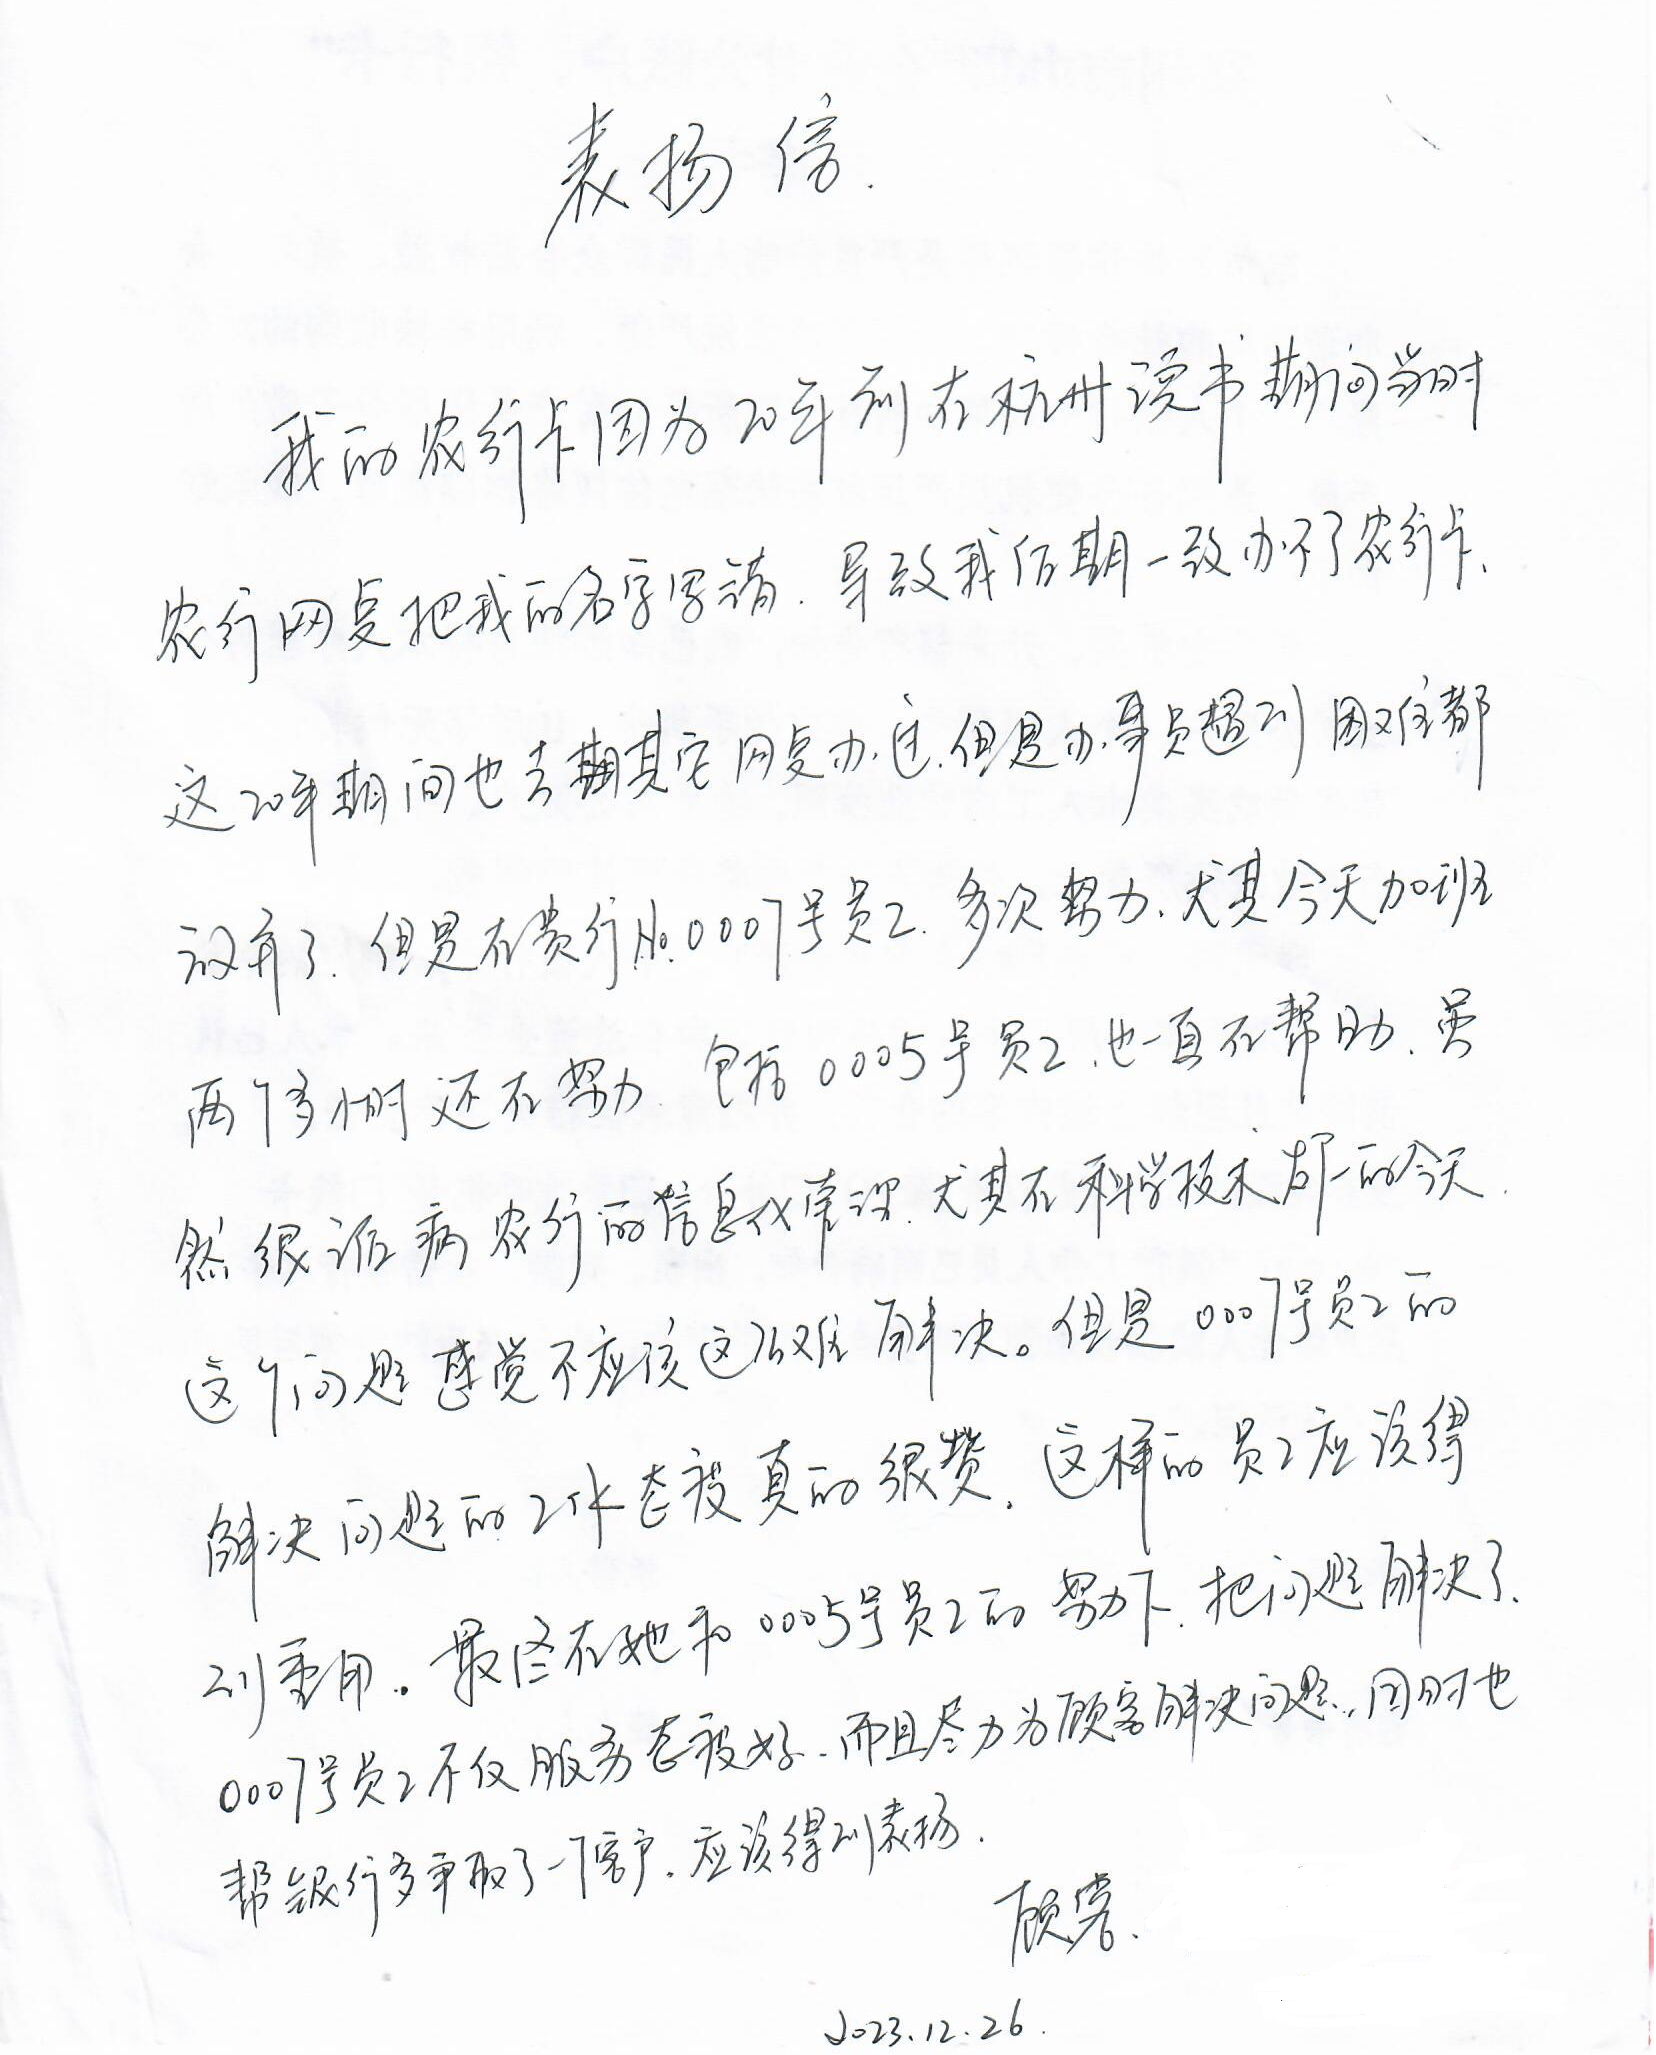 表扬信.
我的农行卡因为20年到在杭州读书期间当时
农行网点把我的名字写错. 导致我后期一致办不了农行卡、
这20年期间也去期其它网点办过.但是办事员遇到困难都
放弃了. 但是在贵行No.0007号员工. 多次努力、尤其今天加班
两个多小时还在努力. 包括0005号员工、也一直在帮助. 虽
然很诟病农行的信息化管理. 尤其在科学技术第一的今天.
这个问题感觉不应该这么难解决。但是0007号员工的
解决问题的工作态度真的很赞. 这样的员工应该得
到重用。最终在她和0005号员工的努力下. 把问题解决了.
0007号员工不仅服务态度好. 而且尽力为顾客解决问题.，同时也
帮银行多争取了一个客户. 应该得到表扬.
顾客.
2023.12.26.